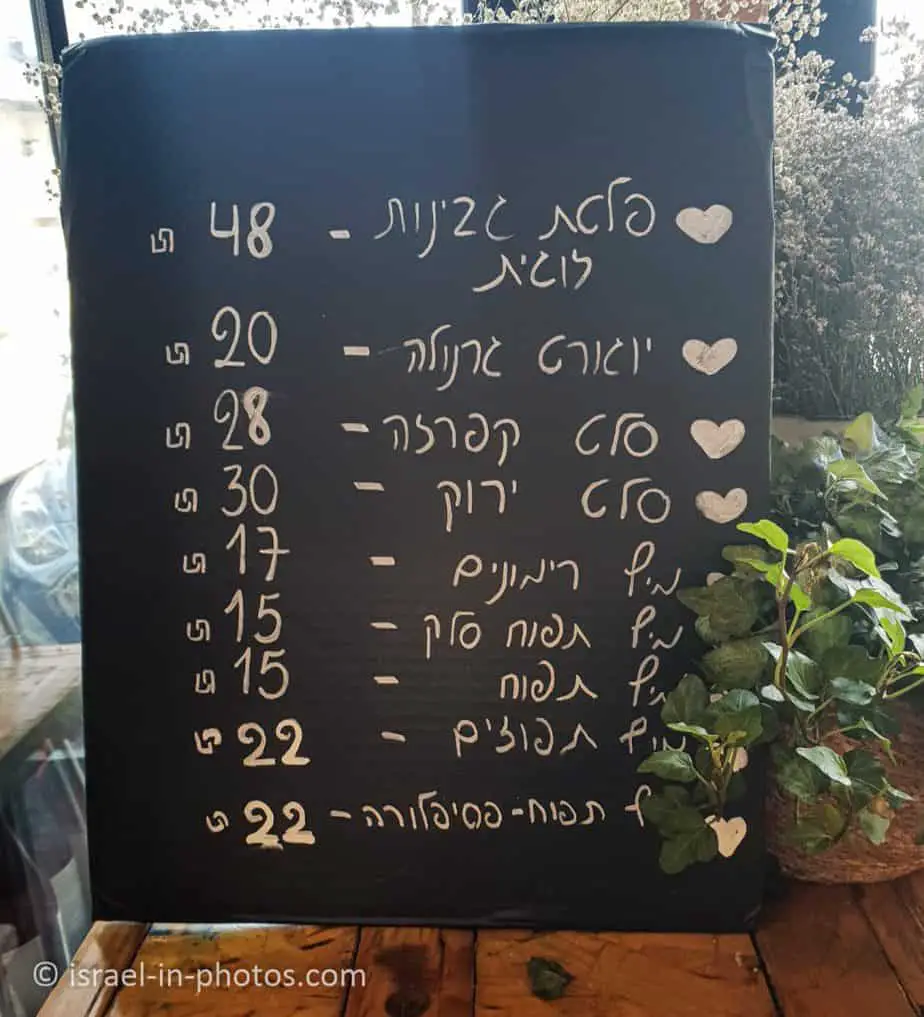 פלטת גבינות - 48 ₪
זוגית
יוגורט גרנולה - 20 ₪
סלט קפרזה - 28 ₪
סלט ירוק - 30 ₪
מיץ רימונים - 17 ₪
מיץ תפוח סלק - 15 ₪
מיץ תפוח - 15 ₪
מיץ תפוזים - 22 ₪
תפוח-פסיפלורה - 22 ₪
© israel-in-photos.com